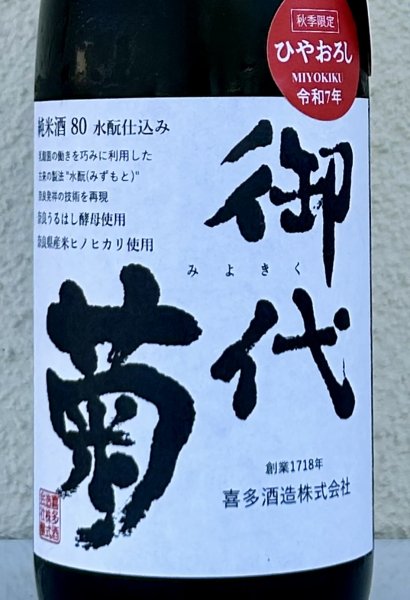 秋季限定
ひやおろし
MIYOKIKU
令和7年
純米酒 80 水酛仕込み
乳酸菌の働きを巧みに利用した
古来の製法"水酛(みずもと)"
奈良発祥の技術を再現
奈良うるはし酵母使用
奈良県産米ヒノヒカリ使用
御代
菊
みよきく
創業1718年
喜多酒造株式会社